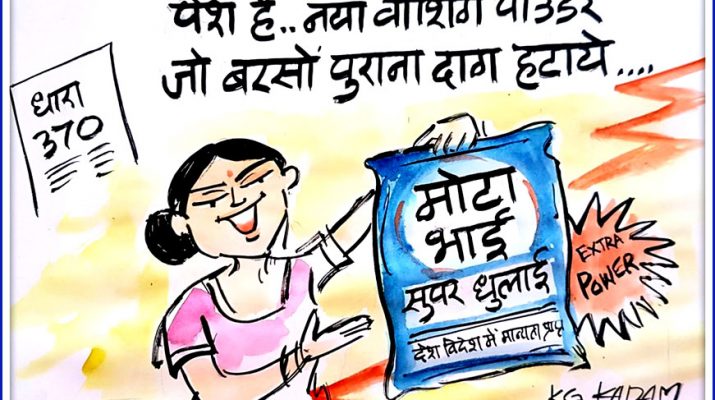 पेश है..नया वाशिंग पाउडर
जो बरसों पुराना दाग हटाये....
धारा
370
मोटा
भाई
सुपर धुलाई
देश विदेश में मान्यता प्राप्त
EXTRA
POWER
KG KADAM